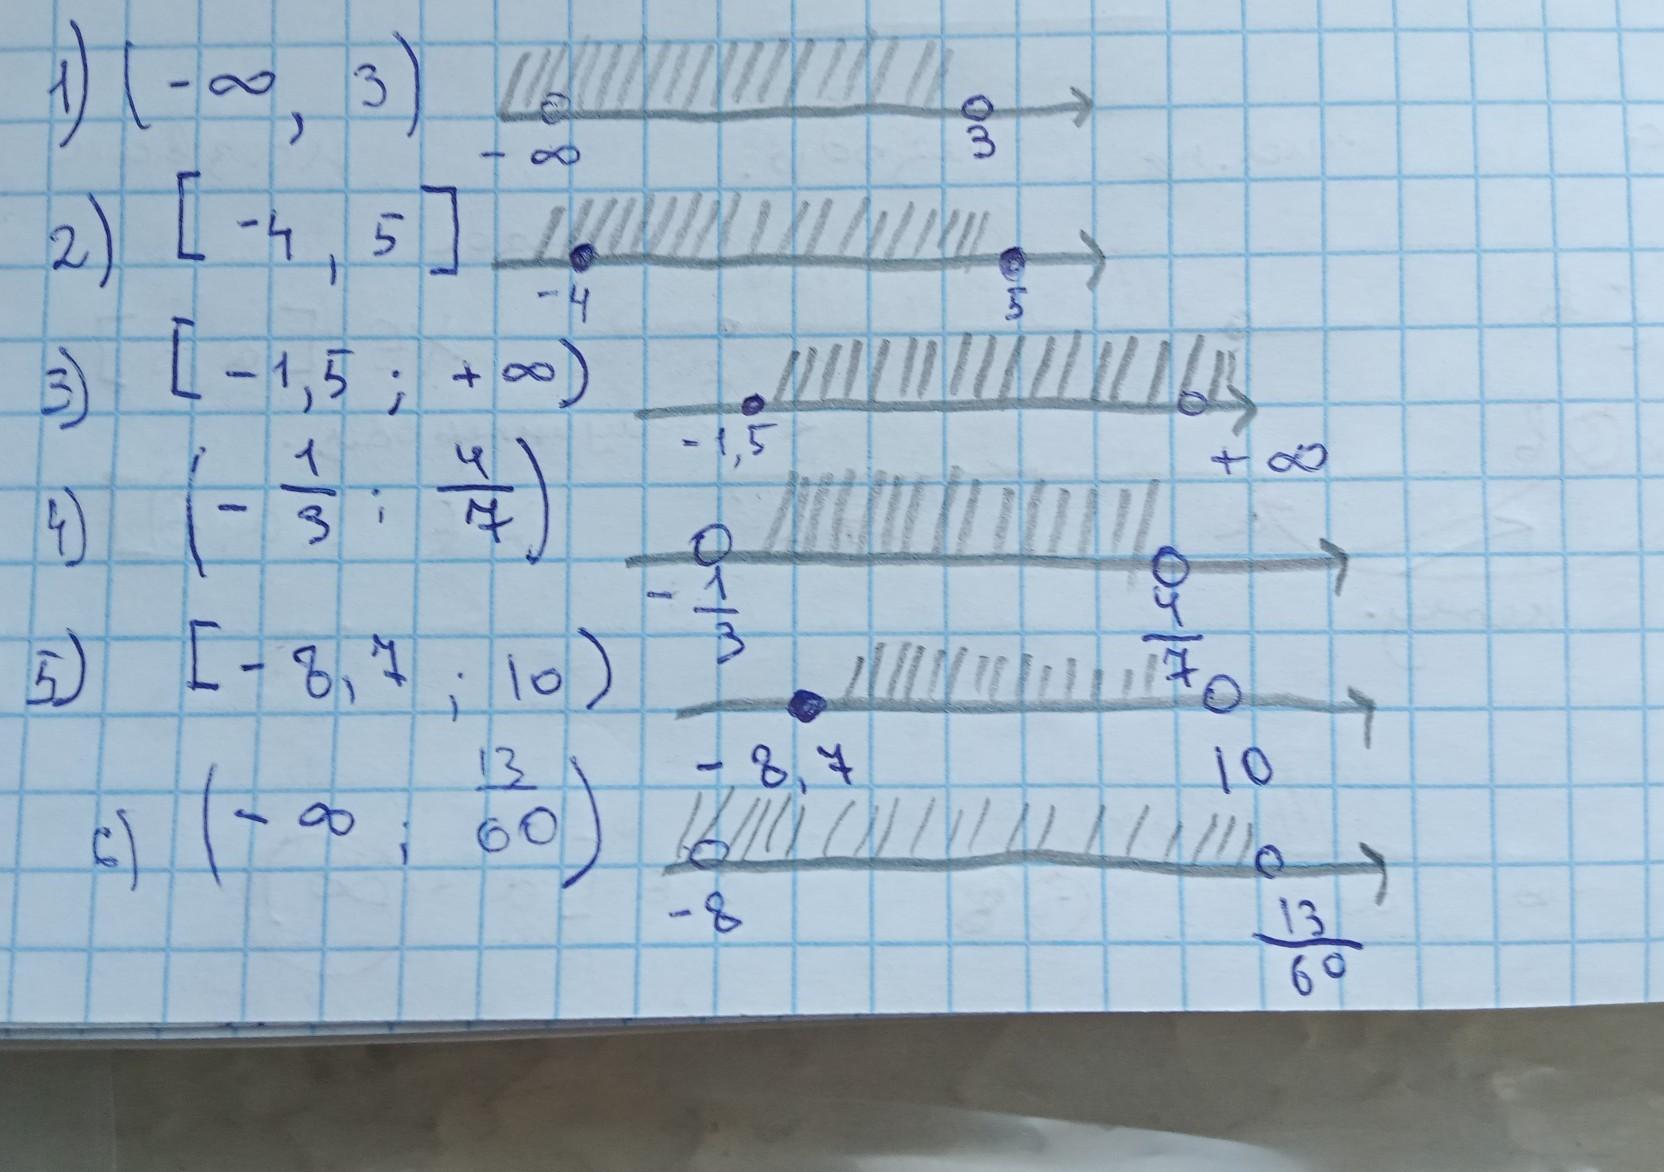 1) (-∞, 3)
-∞ 3
2) [-4, 5]
-4 5
3) [-1,5 ; +∞)
-1,5 +∞
4) (-1/3 ; 4/7)
-1/3 4/7
5) [-8,7 ; 10)
-8,7 10
6) (-∞ ; 13/60)
-8 13/60